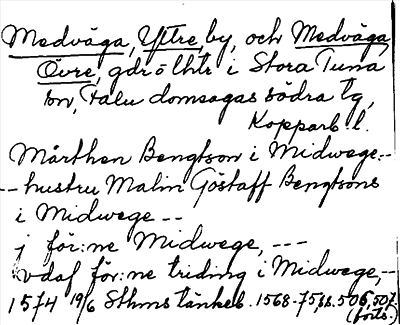 Medväga, Yttre, by, och Medväga,
Övre, gdr o lhtr i Stora Tuna
sn, Falu domsagas södra tg,
Kopparb. l.
Mårthen Bengtson i Midwege --
-- hustru Malin Göstaff Bengtsons
i Midwege --
j för:ne Midwege, ---
vdaf för:ne triding i Midwege --
1574 19/6 Sthms tänkeb. 1568-75, s. 506, 507.
(forts.)